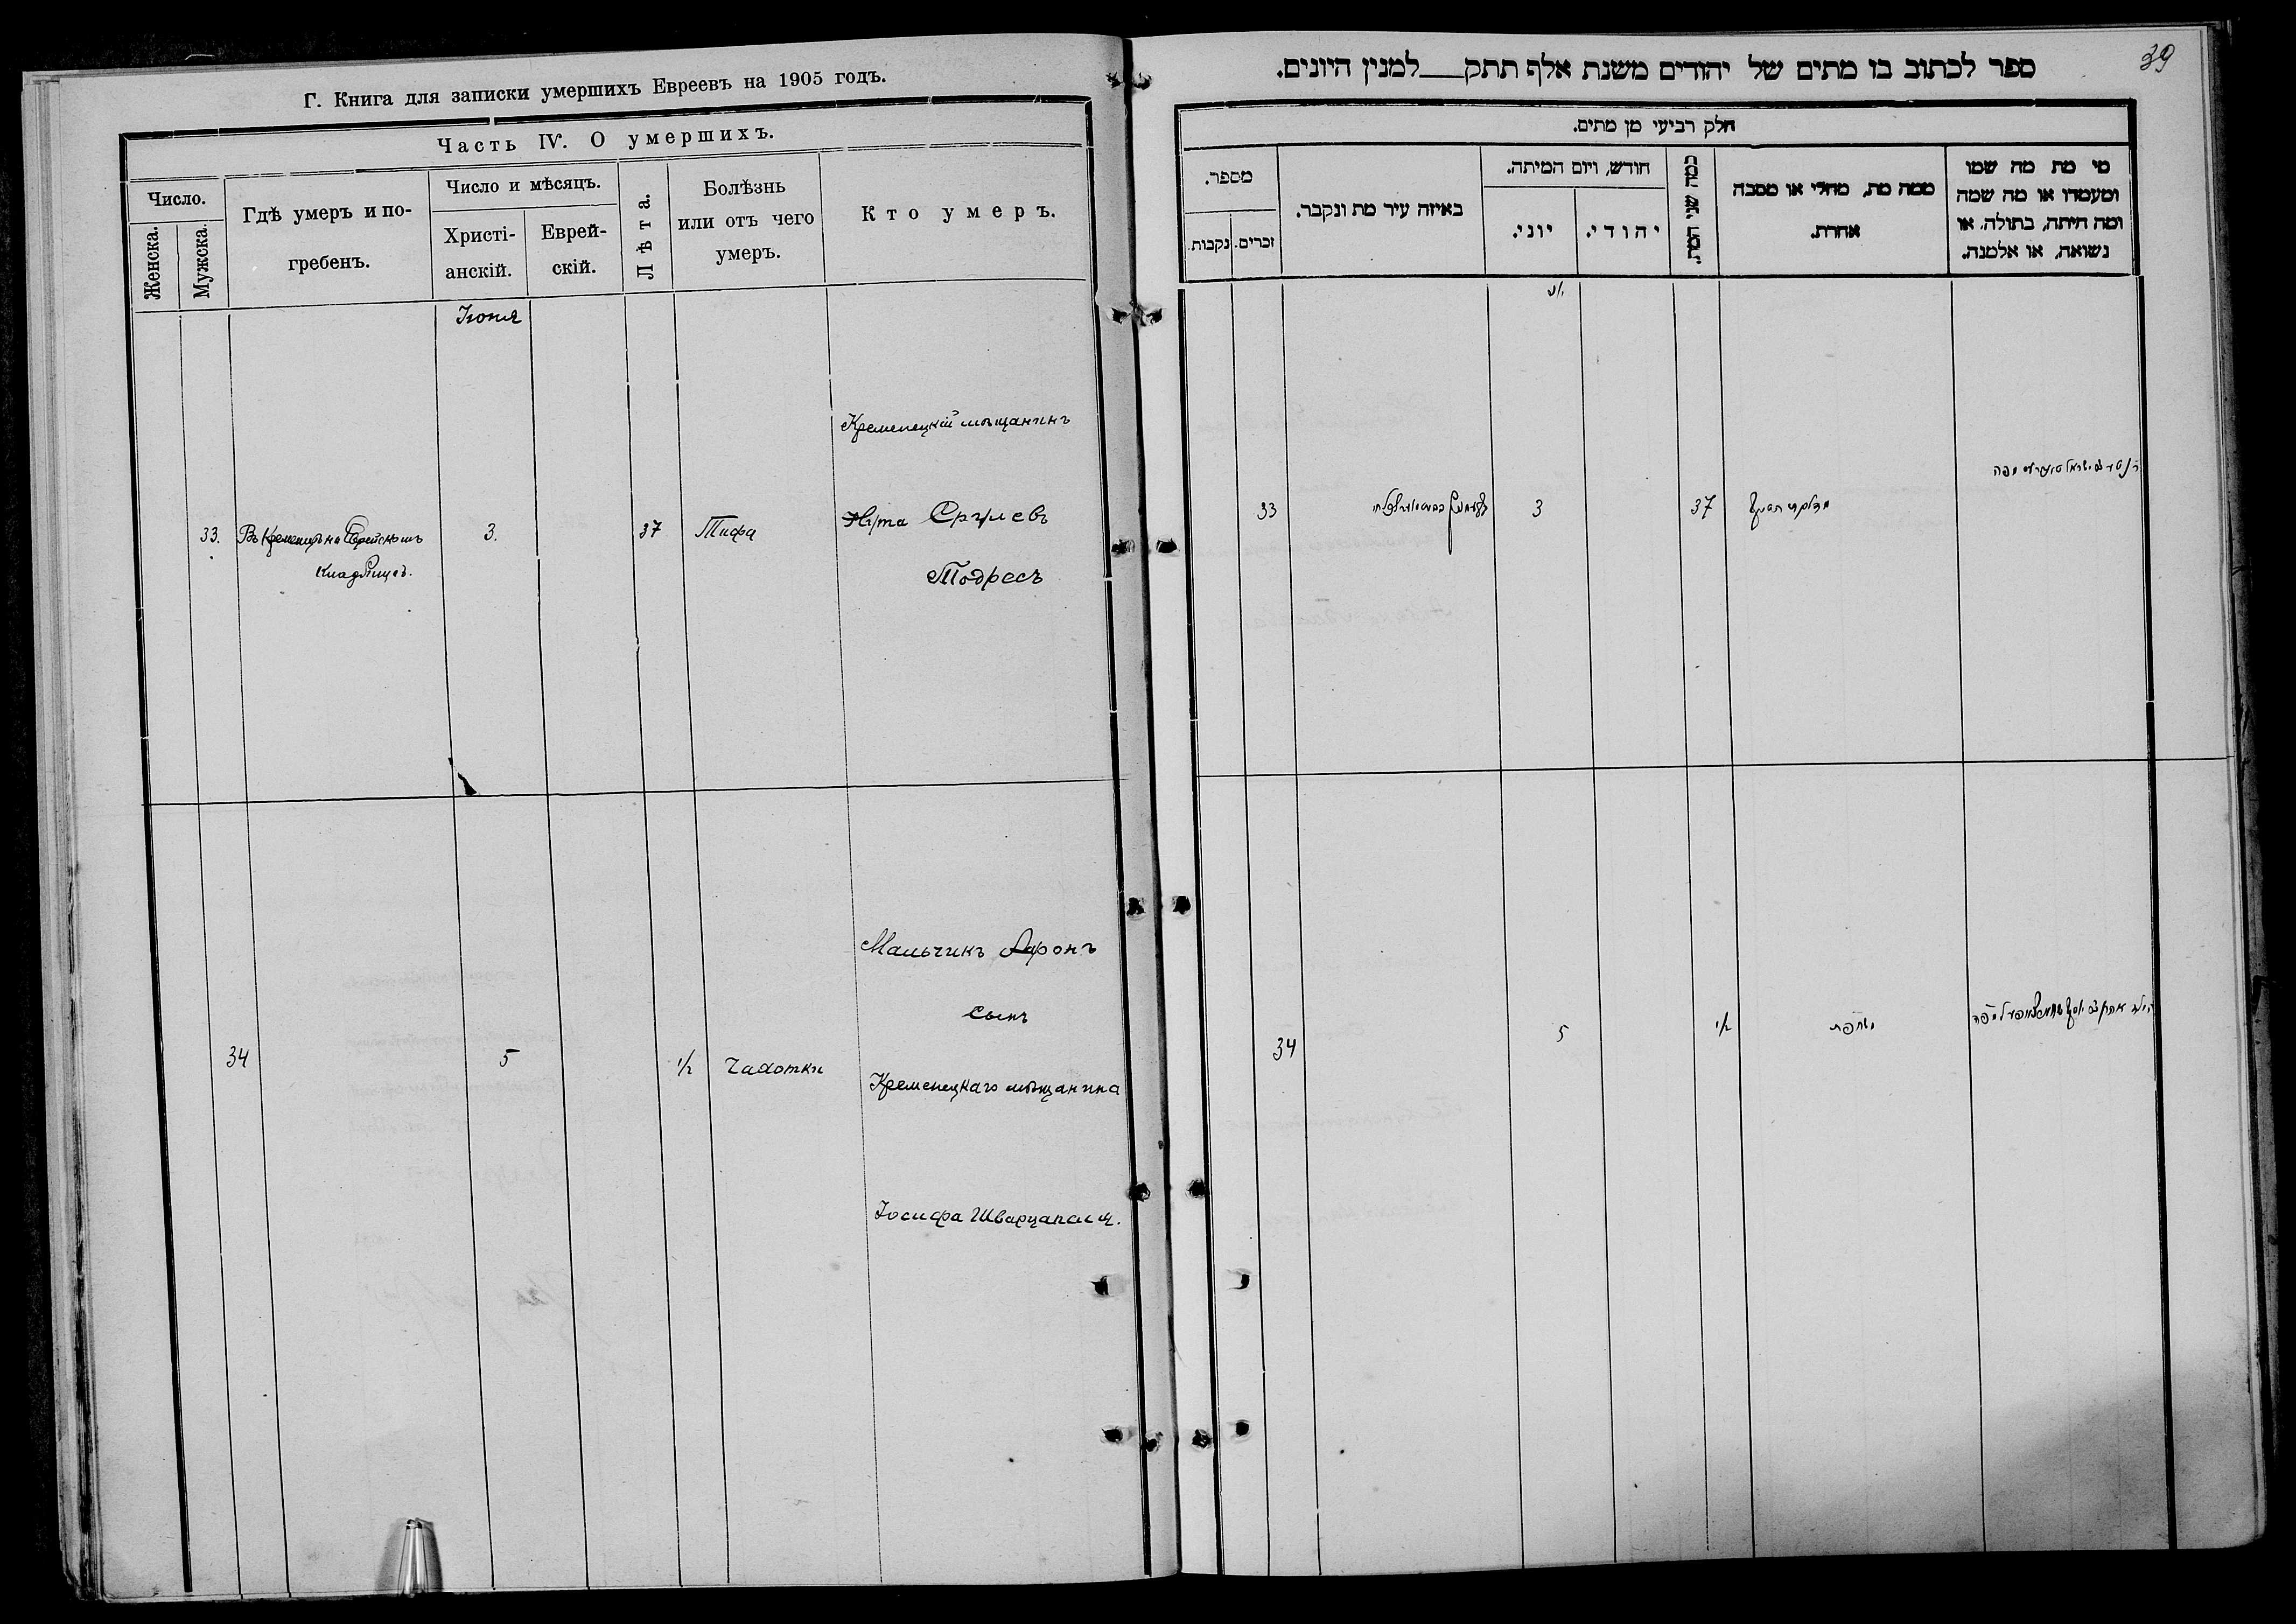 Г. Книга для записки умершихъ Евреевъ на 1905 годъ.
Часть IV. О умершихъ.
Число.
Женска.
Мужска.
Гдѣ умеръ и по-
гребенъ.
Число и мѣсяцъ.
Христі-
анскій.
Еврей-
скій.
Лѣта.
Болѣзнь
или отъ чего
умеръ.
Кто умеръ.
Іюня
Кременецкій мѣщанинъ
33. Въ Кременцѣ на Еврейскомъ 3. 37 Тифа Срулевъ
Кладбищѣ.
Мальчикъ Аронъ
сынъ
34 5 1/2 Чахотки
Кременецкаго мѣщанина
Іосифа Шварцапеля.
39
ספר לכתוב בו מתים של יהודים משנת אלף תתק___למנין היונים.
חלק רביעי מן מתים.
מספר.
נקבות.
זכרים.
באיזה עיר מת ונקבר.
חודש, ויום המיתה.
יוני.
יהודי.
כמה שני המת.
ממה מת, מחלי או מסבה
אחרת.
מי מת מה שמו
ומעמדו או מה שמה
ומה היתה, בתולה, או
נשואה, או אלמנה.
33 3 37
34 5 1/2